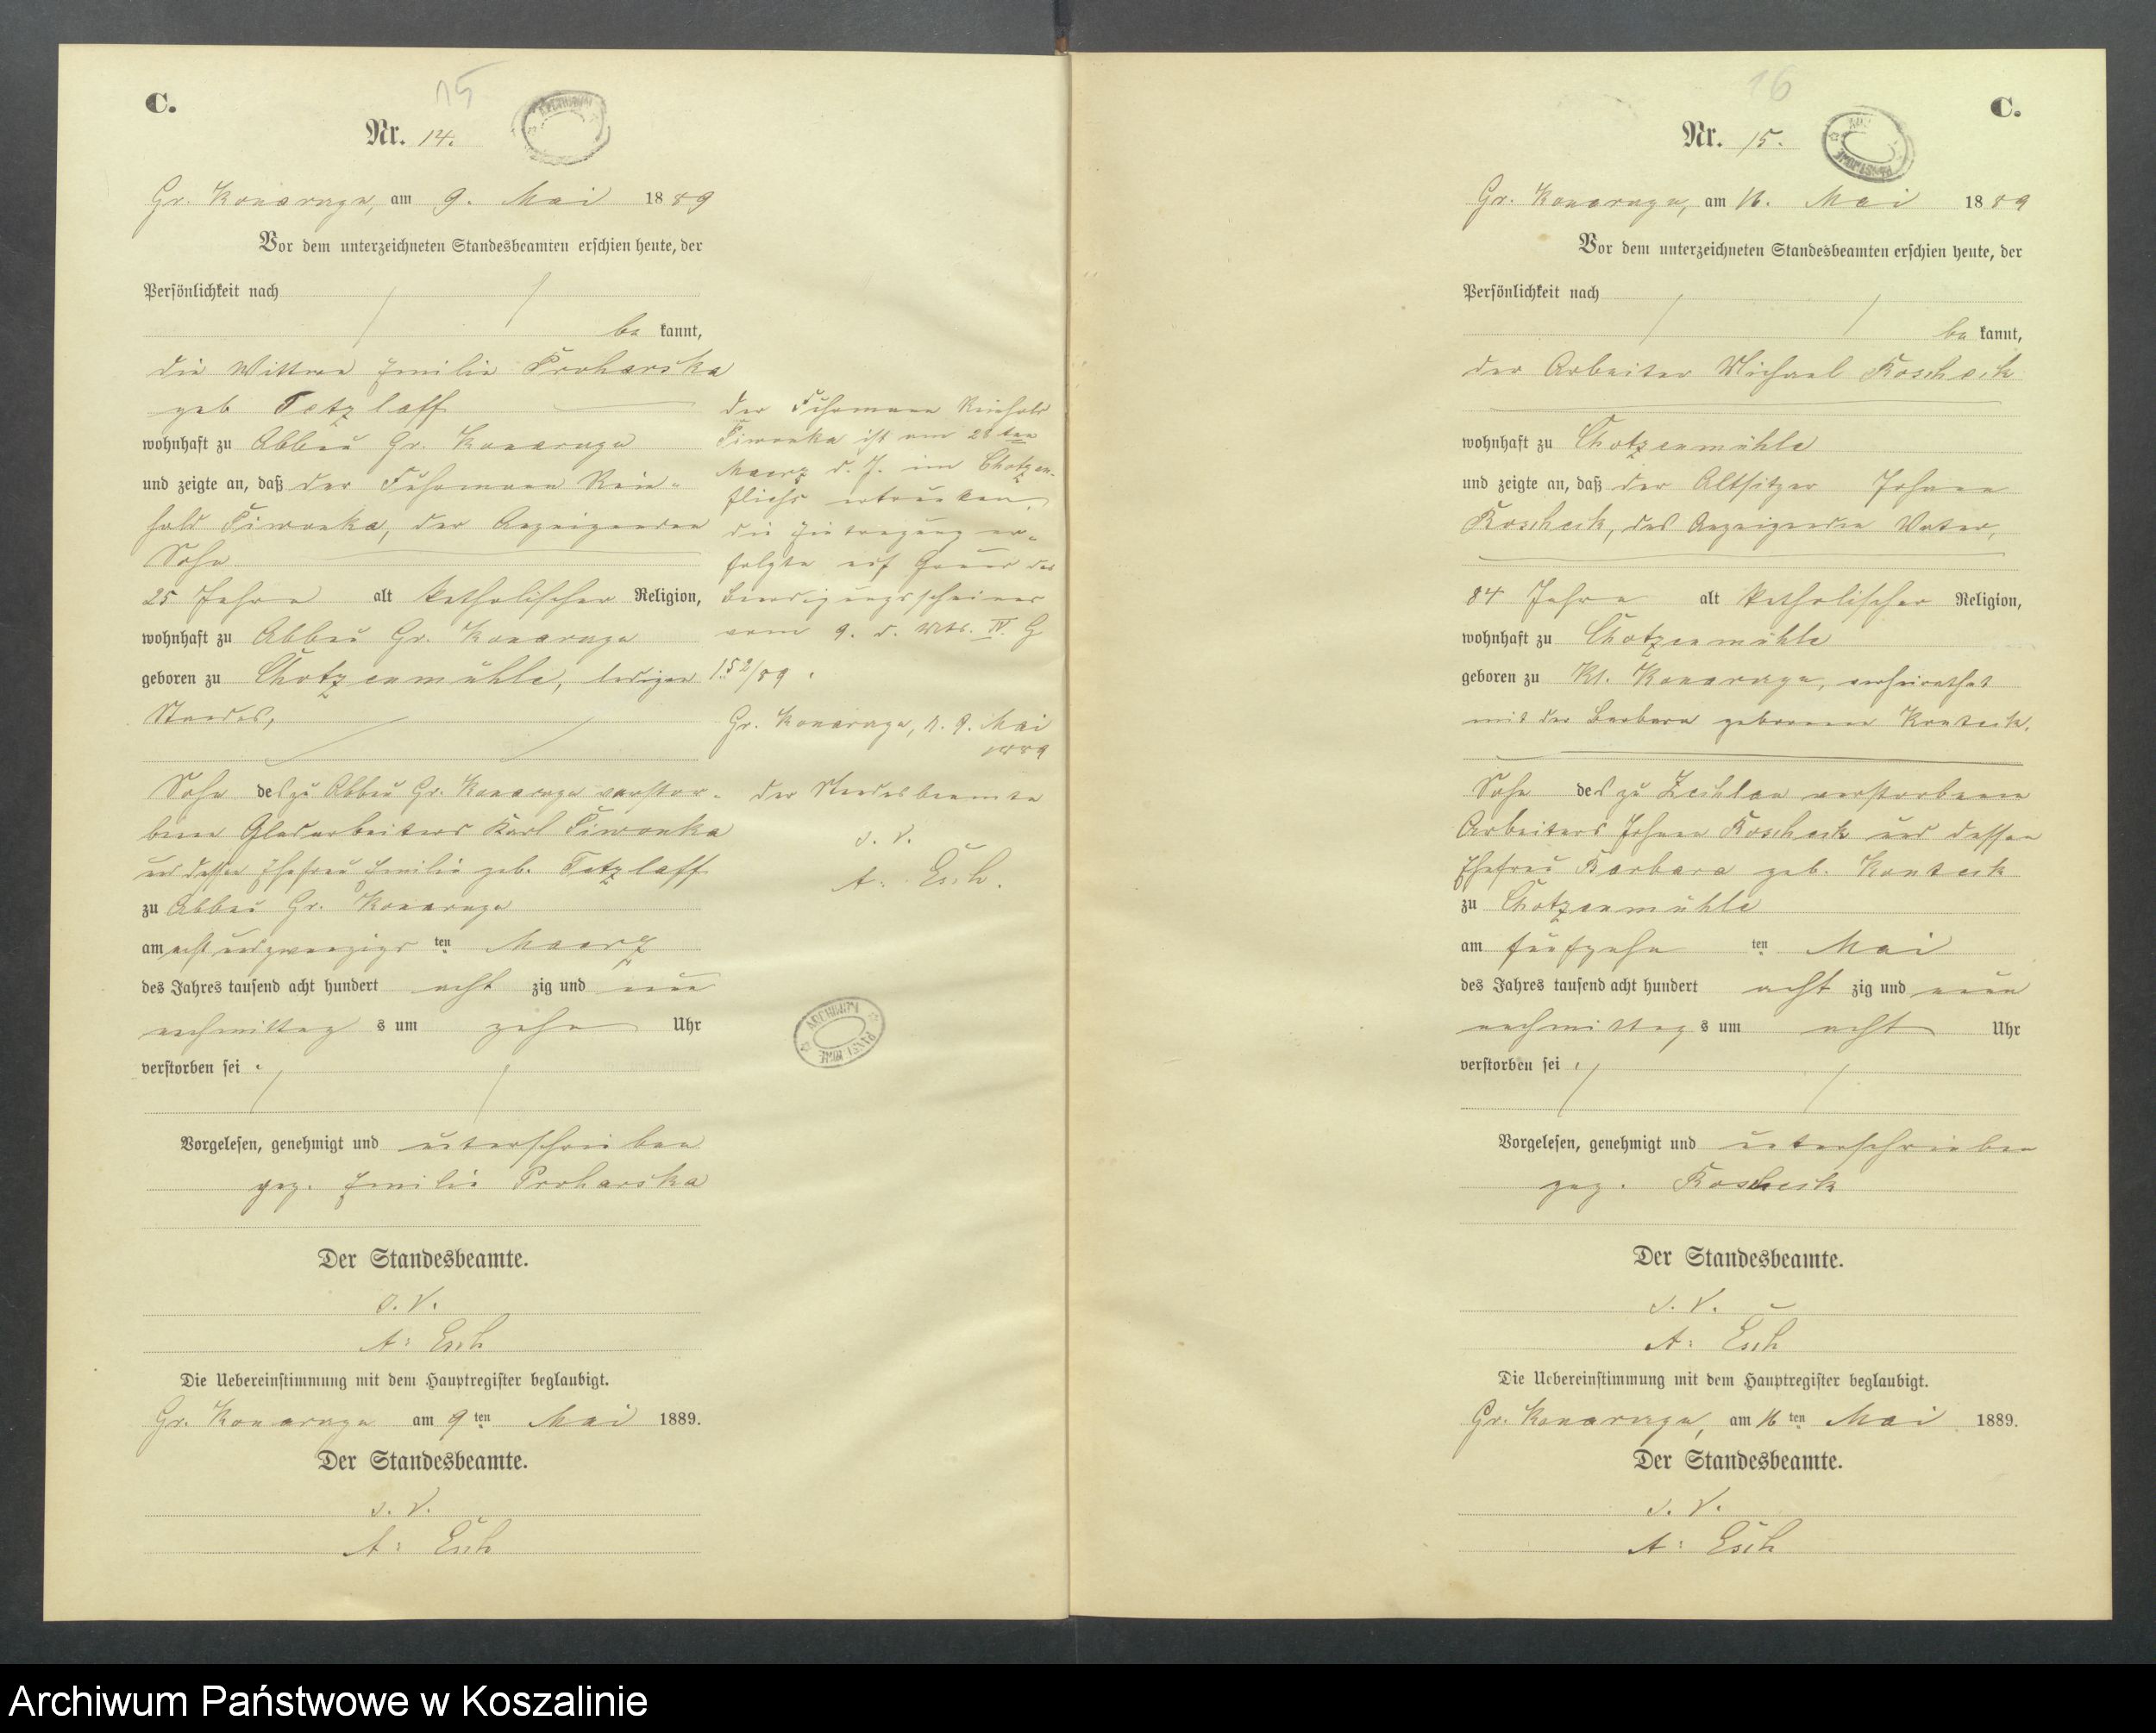 C.
15
Nr. 14.
Gr. Konarczyn, am 9. Mai 1889
Vor dem unterzeichneten Standesbeamten erschien heute, der
Persönlichkeit nach
be kannt,
die Wittwe Emilie Proharska
geb Tetzlaff
wohnhaft zu Abbau Gr. Konarczyn
und zeigte an, daß der Fuhrmann Rein-
hold Piwonka, der Anzeigenden
Sohn
25 Jahre alt katholischer Religion,
wohnhaft zu Abbau Gr. Konarczyn
geboren zu Chotzenmühle, ledigen
Standes,
Sohn des zu Abbau Gr. Konarczyn verstor-
benen Glasarbeiters Karl Piwonka
und dessen Ehefrau Emilie geb. Tetzlaff
zu Abbau Gr. Konarczyn
am acht und zwanzigsten Maerz
des Jahres tausend acht hundert acht zig und neun
nachmittag s um zehn Uhr
verstorben sei.
Vorgelesen, genehmigt und unterschrieben
gez. Emilie Proharska
Der Standesbeamte.
i. V.
A: Esch
Die Uebereinstimmung mit dem Hauptregister beglaubigt.
Gr. Konarczyn am 9 ten Mai 1889.
Der Standesbeamte.
i. V.
A: Esch
der Fuhrmann Reinhold
Piwonka ist am 28 ten
Maerz d. J. im Chotzen-
fliess ertrunken,
die Eintragung er-
folgte auf Grund des
Beerdigungsscheines
vom 9. d. Mts. IV. G
152/89.
Gr. Konarczyn, d. 9. Mai
1889
der Standesbeamte
i. V.
A: Esch.
ARCHIWUM PAŃSTWOWE
16
C.
Nr. 15.
Gr. Konarczyn, am 16. Mai 1889
Vor dem unterzeichneten Standesbeamten erschien heute, der
Persönlichkeit nach
be kannt,
der Arbeiter Michael Koscheck
wohnhaft zu Chotzenmühle
und zeigte an, daß der Altsitzer Johann
Koscheck, des Anzeigenden Vater,
84 Jahre alt katholischer Religion,
wohnhaft zu Chotzenmühle
geboren zu Kl. Konarczyn, verheirathet
mit der Barbara geborenen
Sohn des zu Zechlau verstorbenen
Arbeiters Johann Koscheck und dessen
Ehefrau Barbara geb.
zu Chotzenmühle
am fünfzehn ten Mai
des Jahres tausend acht hundert acht zig und neun
nachmittag s um acht Uhr
verstorben sei.
Vorgelesen, genehmigt und unterschrieben
gez. Koscheck
Der Standesbeamte.
i. V.
A: Esch
Die Uebereinstimmung mit dem Hauptregister beglaubigt.
Gr. Konarczyn, am 16 ten Mai 1889.
Der Standesbeamte.
i. V.
A: Esch
Archiwum Państwowe w Koszalinie